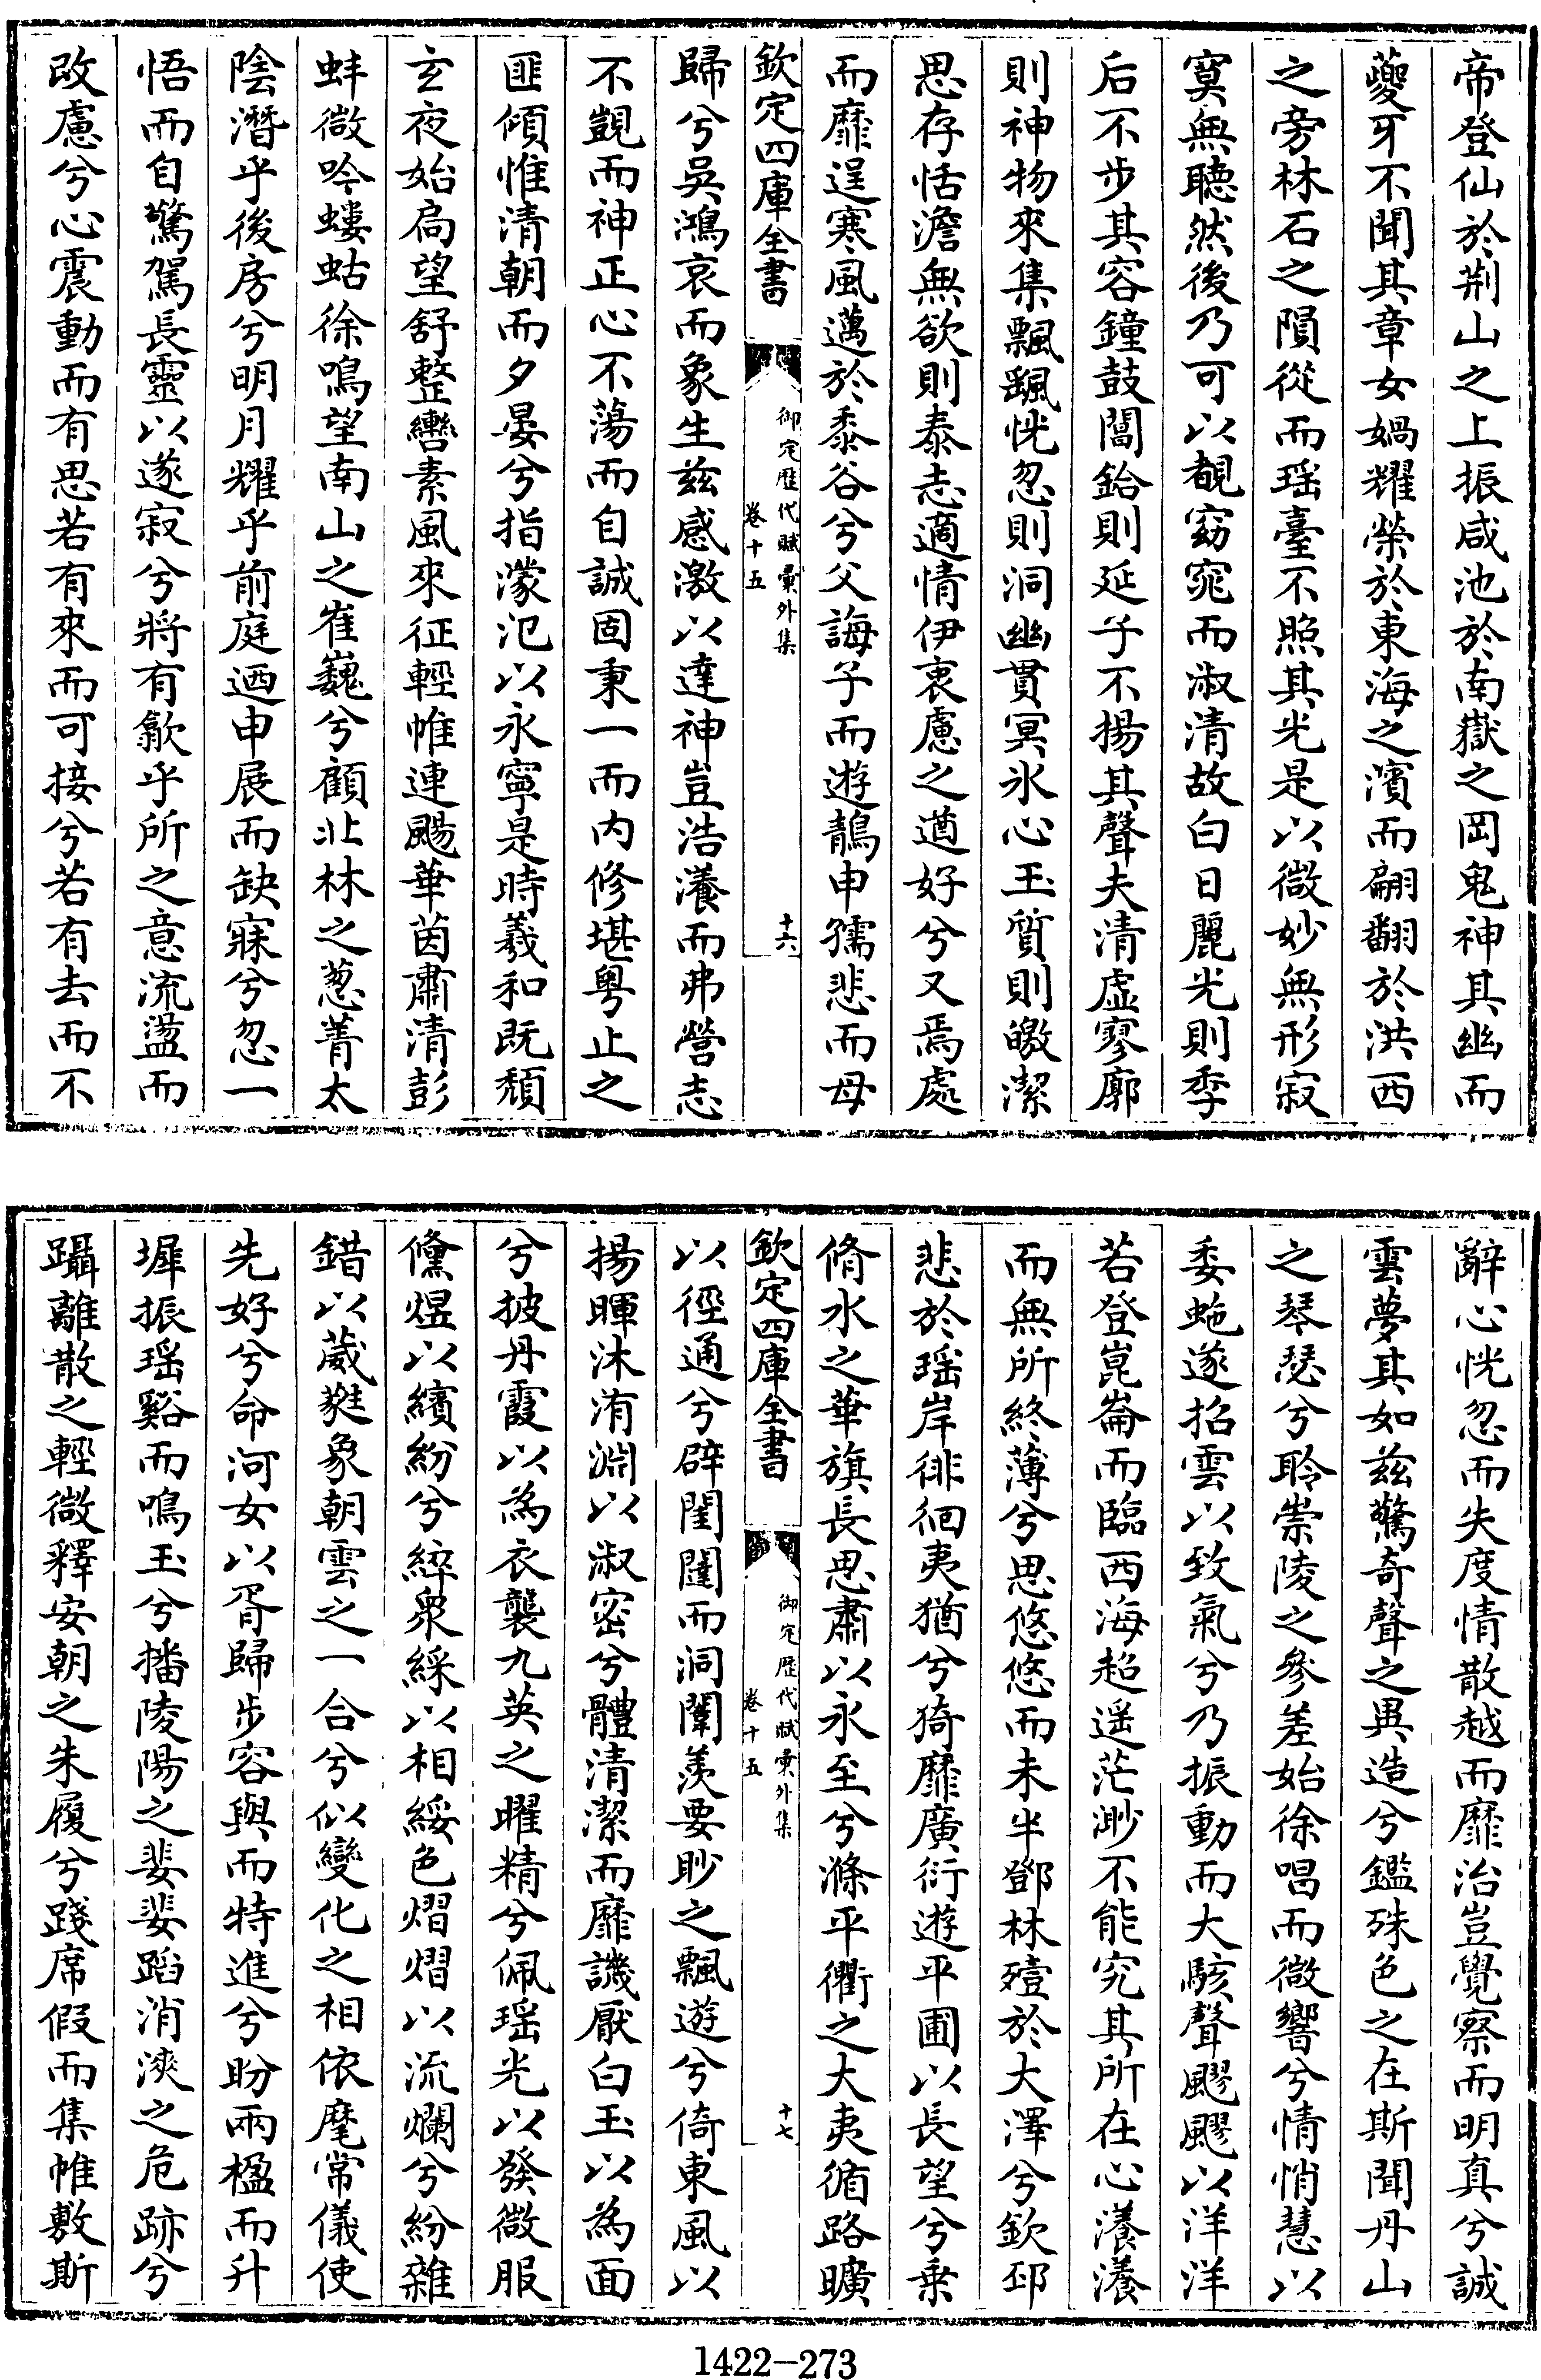 帝登仙於荆山之上振咸池於南嶽之岡鬼神其幽而
夔牙不聞其章女媧耀榮於東海之濱而翩翻於洪西
之旁林石之隕從而瑶臺不照其光是以微妙無形寂
寞無聽然後乃可以覩窈窕而淑清故白日麗光則季
后不步其容鐘鼓閶鉿則延子不揚其聲夫清虚寥廓
則神物來集飄颻恍忽則洞幽貫冥氷心玉質則皦潔
思存恬澹無欲則泰志適情伊衷慮之遒好兮又焉處
而靡逞寒風邁於黍谷兮父誨子而遊鶄申孺悲而母
欽定四庫全書
御定歴代賦彙外集
卷十五
十六
歸兮吳鴻哀而象生兹感激以達神豈浩瀁而弗營志
不覬而神正心不蕩而自誠固秉一而内修堪粵止之
匪傾惟清朝而夕晏兮指濛汜以永寧是時羲和既頹
玄夜始扃望舒整轡素風來征輕帷連颺華茵肅清彭
蚌微吟螻蛄徐鳴望南山之崔巍兮顧北林之葱菁太
陰潛乎後房兮明月耀乎前庭迺申展而缺寐兮忽一
悟而自驚駕長靈以遂寂兮將有歙乎所之意流盪而
改慮兮心震動而有思若有來而可接兮若有去而不
辭心恍忽而失度情散越而靡治豈覺察而明真兮誠
雲夢其如兹驚奇聲之異造兮鑑殊色之在斯聞丹山
之琴瑟兮聆崇陵之參差始徐唱而微響兮情悄慧以
委蛇遂招雲以致氣兮乃振動而大駭聲飂飂以洋洋
若登崑崙而臨西海超遥茫渺不能究其所在心瀁瀁
而無所終薄兮思悠悠而未半鄧林殪於大澤兮欽邳
悲於瑶岸徘徊夷猶兮猗靡廣衍遊平圃以長望兮乗
脩水之華旗長思肅以永至兮滌平衢之大夷循路曠
欽定四庫全書
御定歴代賦彙外集
卷十五
十七
以徑通兮辟閨闥而洞闈羨要眇之飄遊兮倚東風以
揚暉沐洧淵以淑密兮體清潔而靡譏厭白玉以為面
兮披丹霞以為衣襲九英之曜精兮佩瑶光以發微服
儵煜以繽紛兮綷衆綵以相綏色熠熠以流爛兮紛雜
錯以葳蕤象朝雲之一合兮似變化之相依麾常儀使
先好兮命河女以胥歸步容與而特進兮盼兩楹而升
墀振瑶谿而鳴玉兮播陵陽之斐斐蹈消漺之危跡兮
躡離散之輕微釋安朝之朱履兮踐席假而集帷敷斯
1422-273